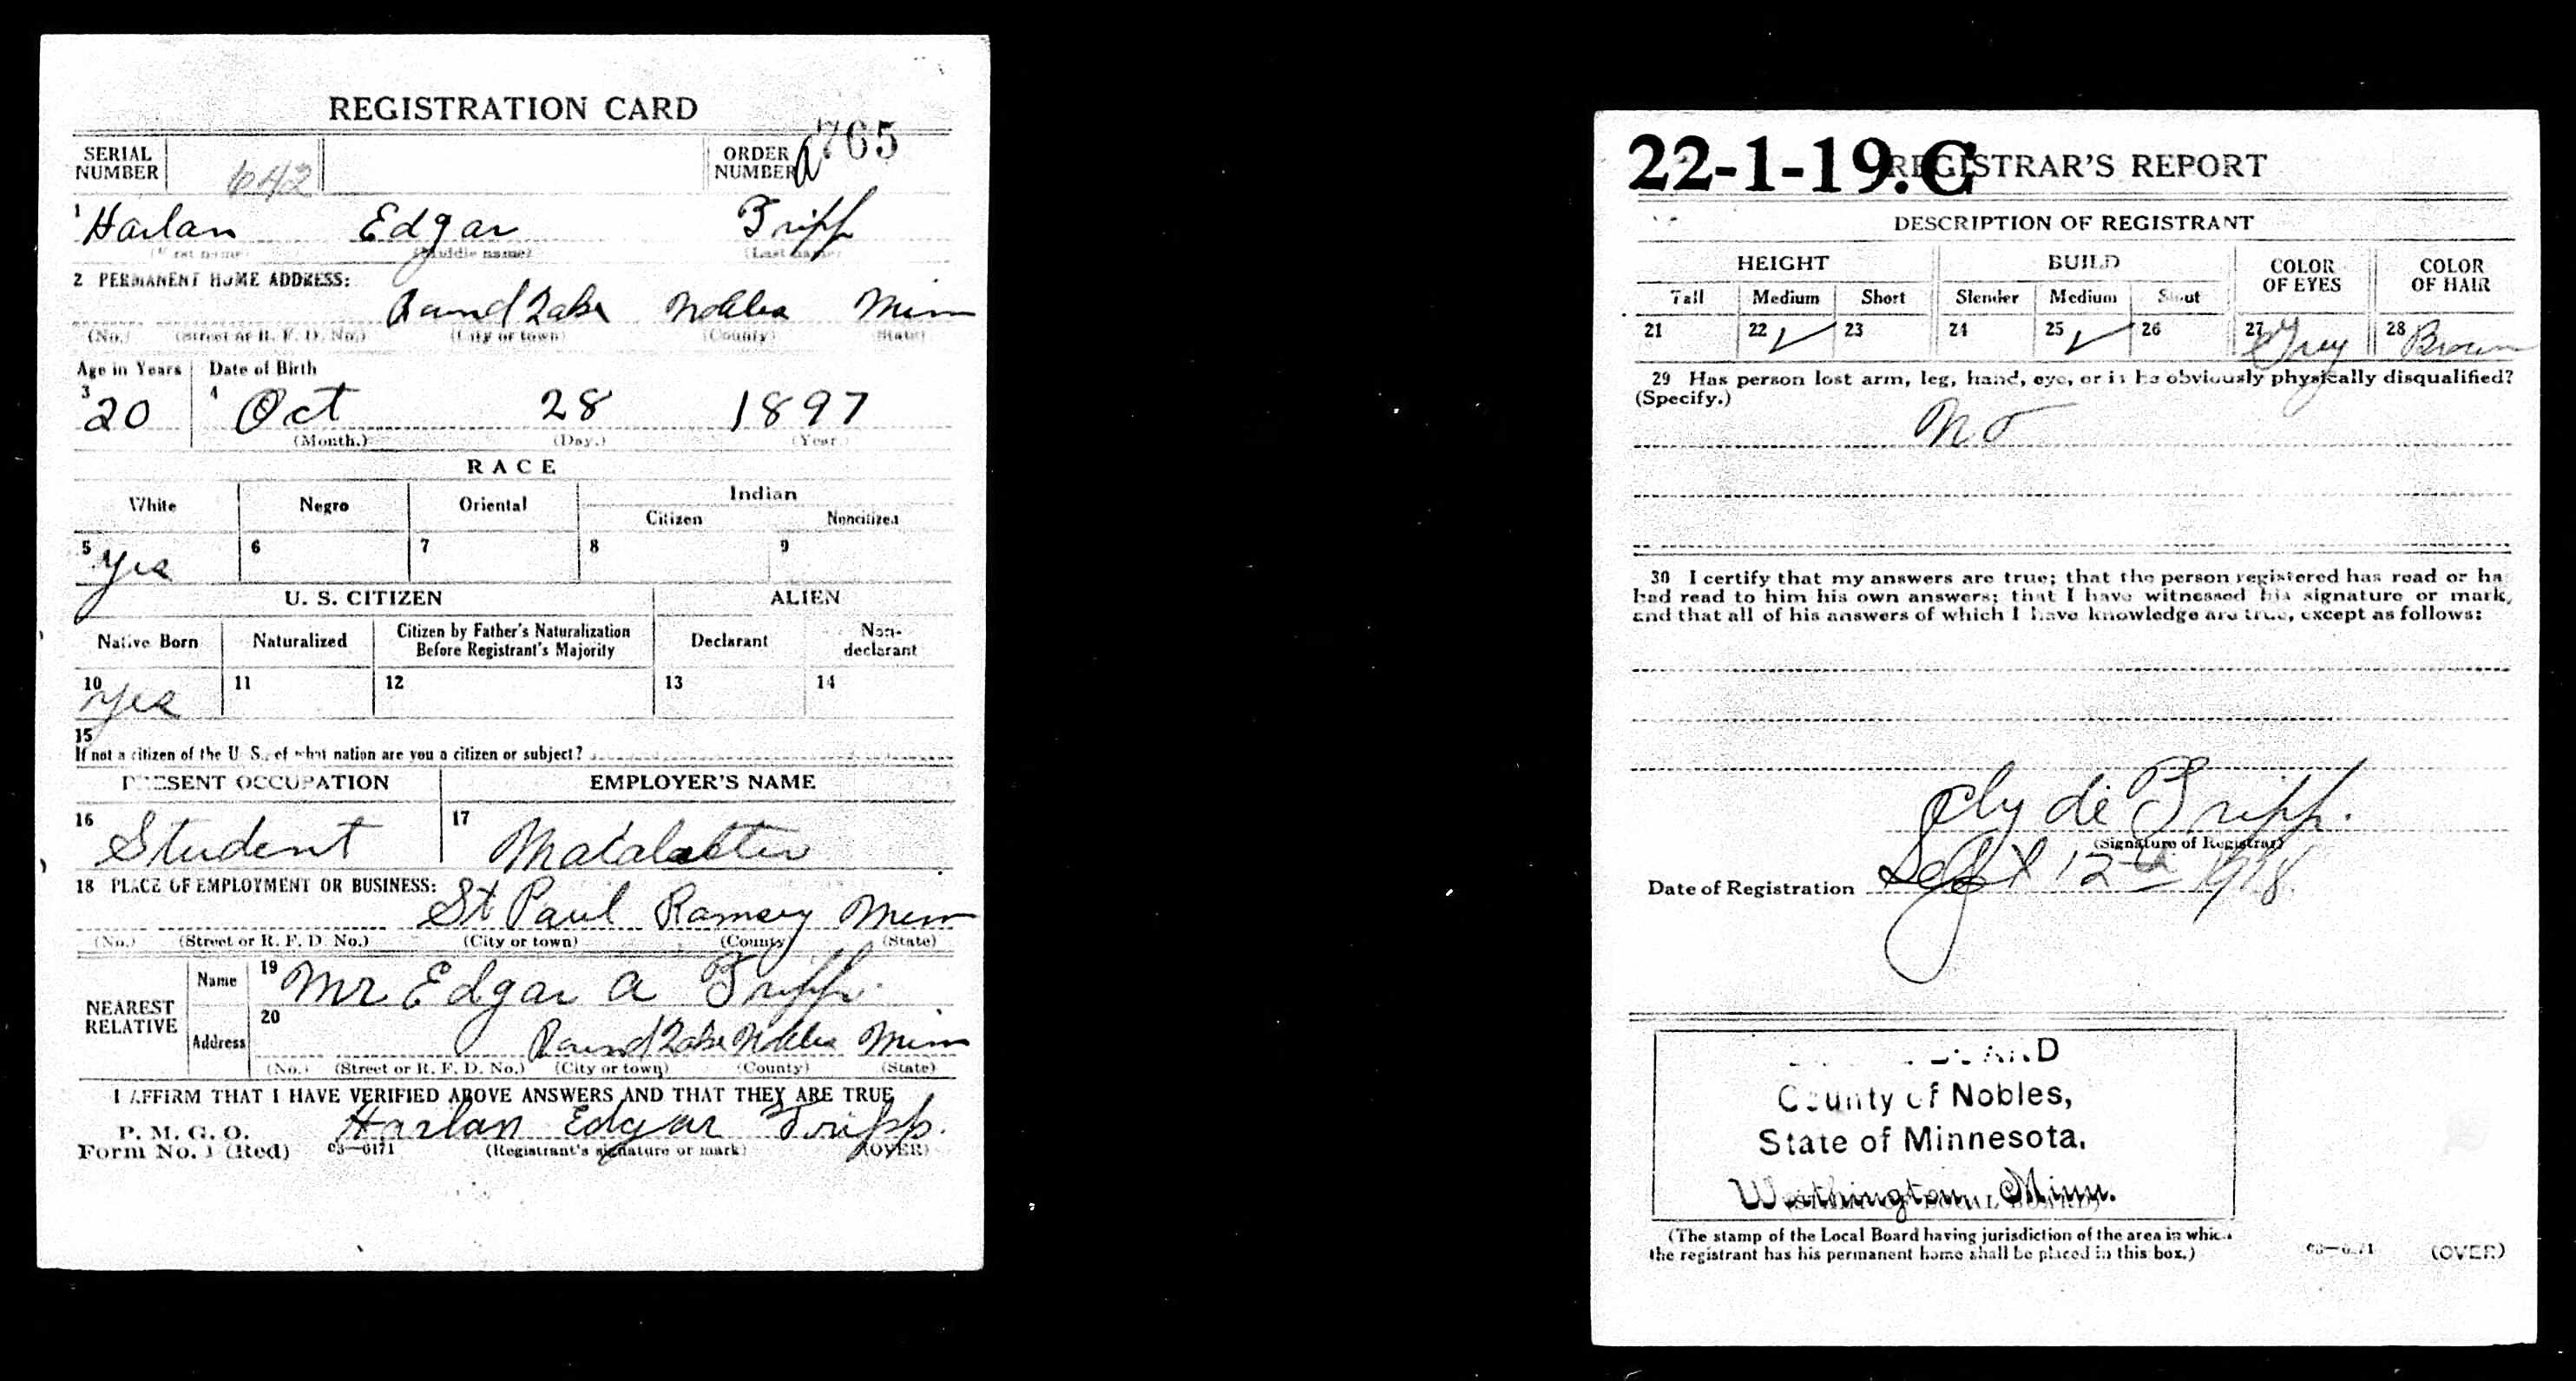 REGISTRATION CARD
SERIAL NUMBER 642 ORDER NUMBER A765
1 Harlan Edgar Tripp
(First name) (Middle name) (Last name)
2 PERMANENT HOME ADDRESS:
Round Lake Nobles Minn
(No.) (Street or R. F. D. No.) (City or town) (County) (State)
Age in Years Date of Birth
3 20 4 Oct 28 1897
(Month.) (Day.) (Year.)
RACE
White Negro Oriental Indian
Citizen Noncitizen
5 Yes 6 7 8 9
U. S. CITIZEN ALIEN
Native Born Naturalized Citizen by Father's Naturalization Before Registrant's Majority Declarant Non-declarant
10 Yes 11 12 13 14
15
If not a citizen of the U. S., of what nation are you a citizen or subject?
PRESENT OCCUPATION EMPLOYER'S NAME
16 Student 17
18 PLACE OF EMPLOYMENT OR BUSINESS:
St Paul Ramsey Minn
(No.) (Street or R. F. D. No.) (City or town) (County) (State)
NEAREST RELATIVE Name 19 Mr Edgar A Tripp.
Address 20 Round Lake Nobles Minn
(No.) (Street or R. F. D. No.) (City or town) (County) (State)
I AFFIRM THAT I HAVE VERIFIED ABOVE ANSWERS AND THAT THEY ARE TRUE
P. M. G. O. Harlan Edgar Tripp.
Form No. 1 (Red) 03—6171 (Registrant's signature or mark) (OVER)
22-1-19. C REGISTRAR'S REPORT
DESCRIPTION OF REGISTRANT
HEIGHT BUILD COLOR OF EYES COLOR OF HAIR
Tall Medium Short Slender Medium Stout
21 22 ✓ 23 24 25 ✓ 26 27 Grey 28 Brown
29 Has person lost arm, leg, hand, eye, or is he obviously physically disqualified?
(Specify.)
No
30 I certify that my answers are true; that the person registered has read or has
had read to him his own answers; that I have witnessed his signature or mark,
and that all of his answers of which I have knowledge are true, except as follows:
Clyde Tripp.
(Signature of Registrar)
Date of Registration Sept 12th 1918.
County of Nobles,
State of Minnesota,
Worthington, Minn.
(The stamp of the Local Board having jurisdiction of the area in which
the registrant has his permanent home shall be placed in this box.)
03—6171 (OVER)